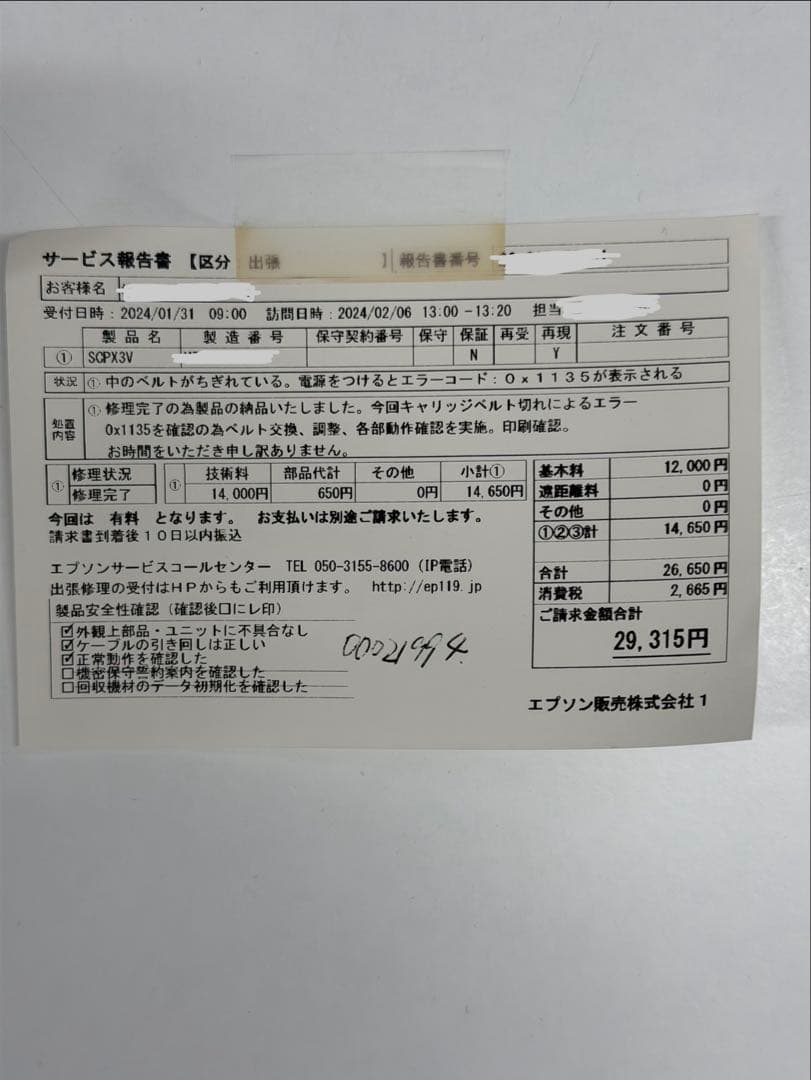 サービス報告書 【区分 出張 】 報告書番号
お客様名
受付日時：2024/01/31 09:00 訪問日時：2024/02/06 13:00-13:20 担当
製品名 製造番号 保守契約番号 保守 保証 再受 再現 注文番号
① SCPX3V N Y
状況 ①中のベルトがちぎれている。電源をつけるとエラーコード：０ｘ１１３５が表示される
処置内容 ①修理完了の為製品の納品いたしました。今回キャリッジベルト切れによるエラー
0x1135を確認の為ベルト交換、調整、各部動作確認を実施。印刷確認。
お時間をいただき申し訳ありません。
① 修理状況 ① 技術料 部品代計 その他 小計①
修理完了 14,000円 650円 0円 14,650円
基本料 12,000円
遠距離料 0円
その他 0円
①②③計 14,650円
合計 26,650円
消費税 2,665円
ご請求金額合計
29,315円
今回は 有料 となります。 お支払いは別途ご請求いたします。
請求書到着後１０日以内振込
エプソンサービスコールセンター TEL 050-3155-8600（IP電話）
出張修理の受付はＨＰからもご利用頂けます。 http://ep119.jp
製品安全性確認（確認後口にレ印）
☑外観上部品・ユニットに不具合なし
☑ケーブルの引き回しは正しい
☑正常動作を確認した
□機密保守誓約案内を確認した
□回収機材のデータ初期化を確認した
00021994
エプソン販売株式会社１